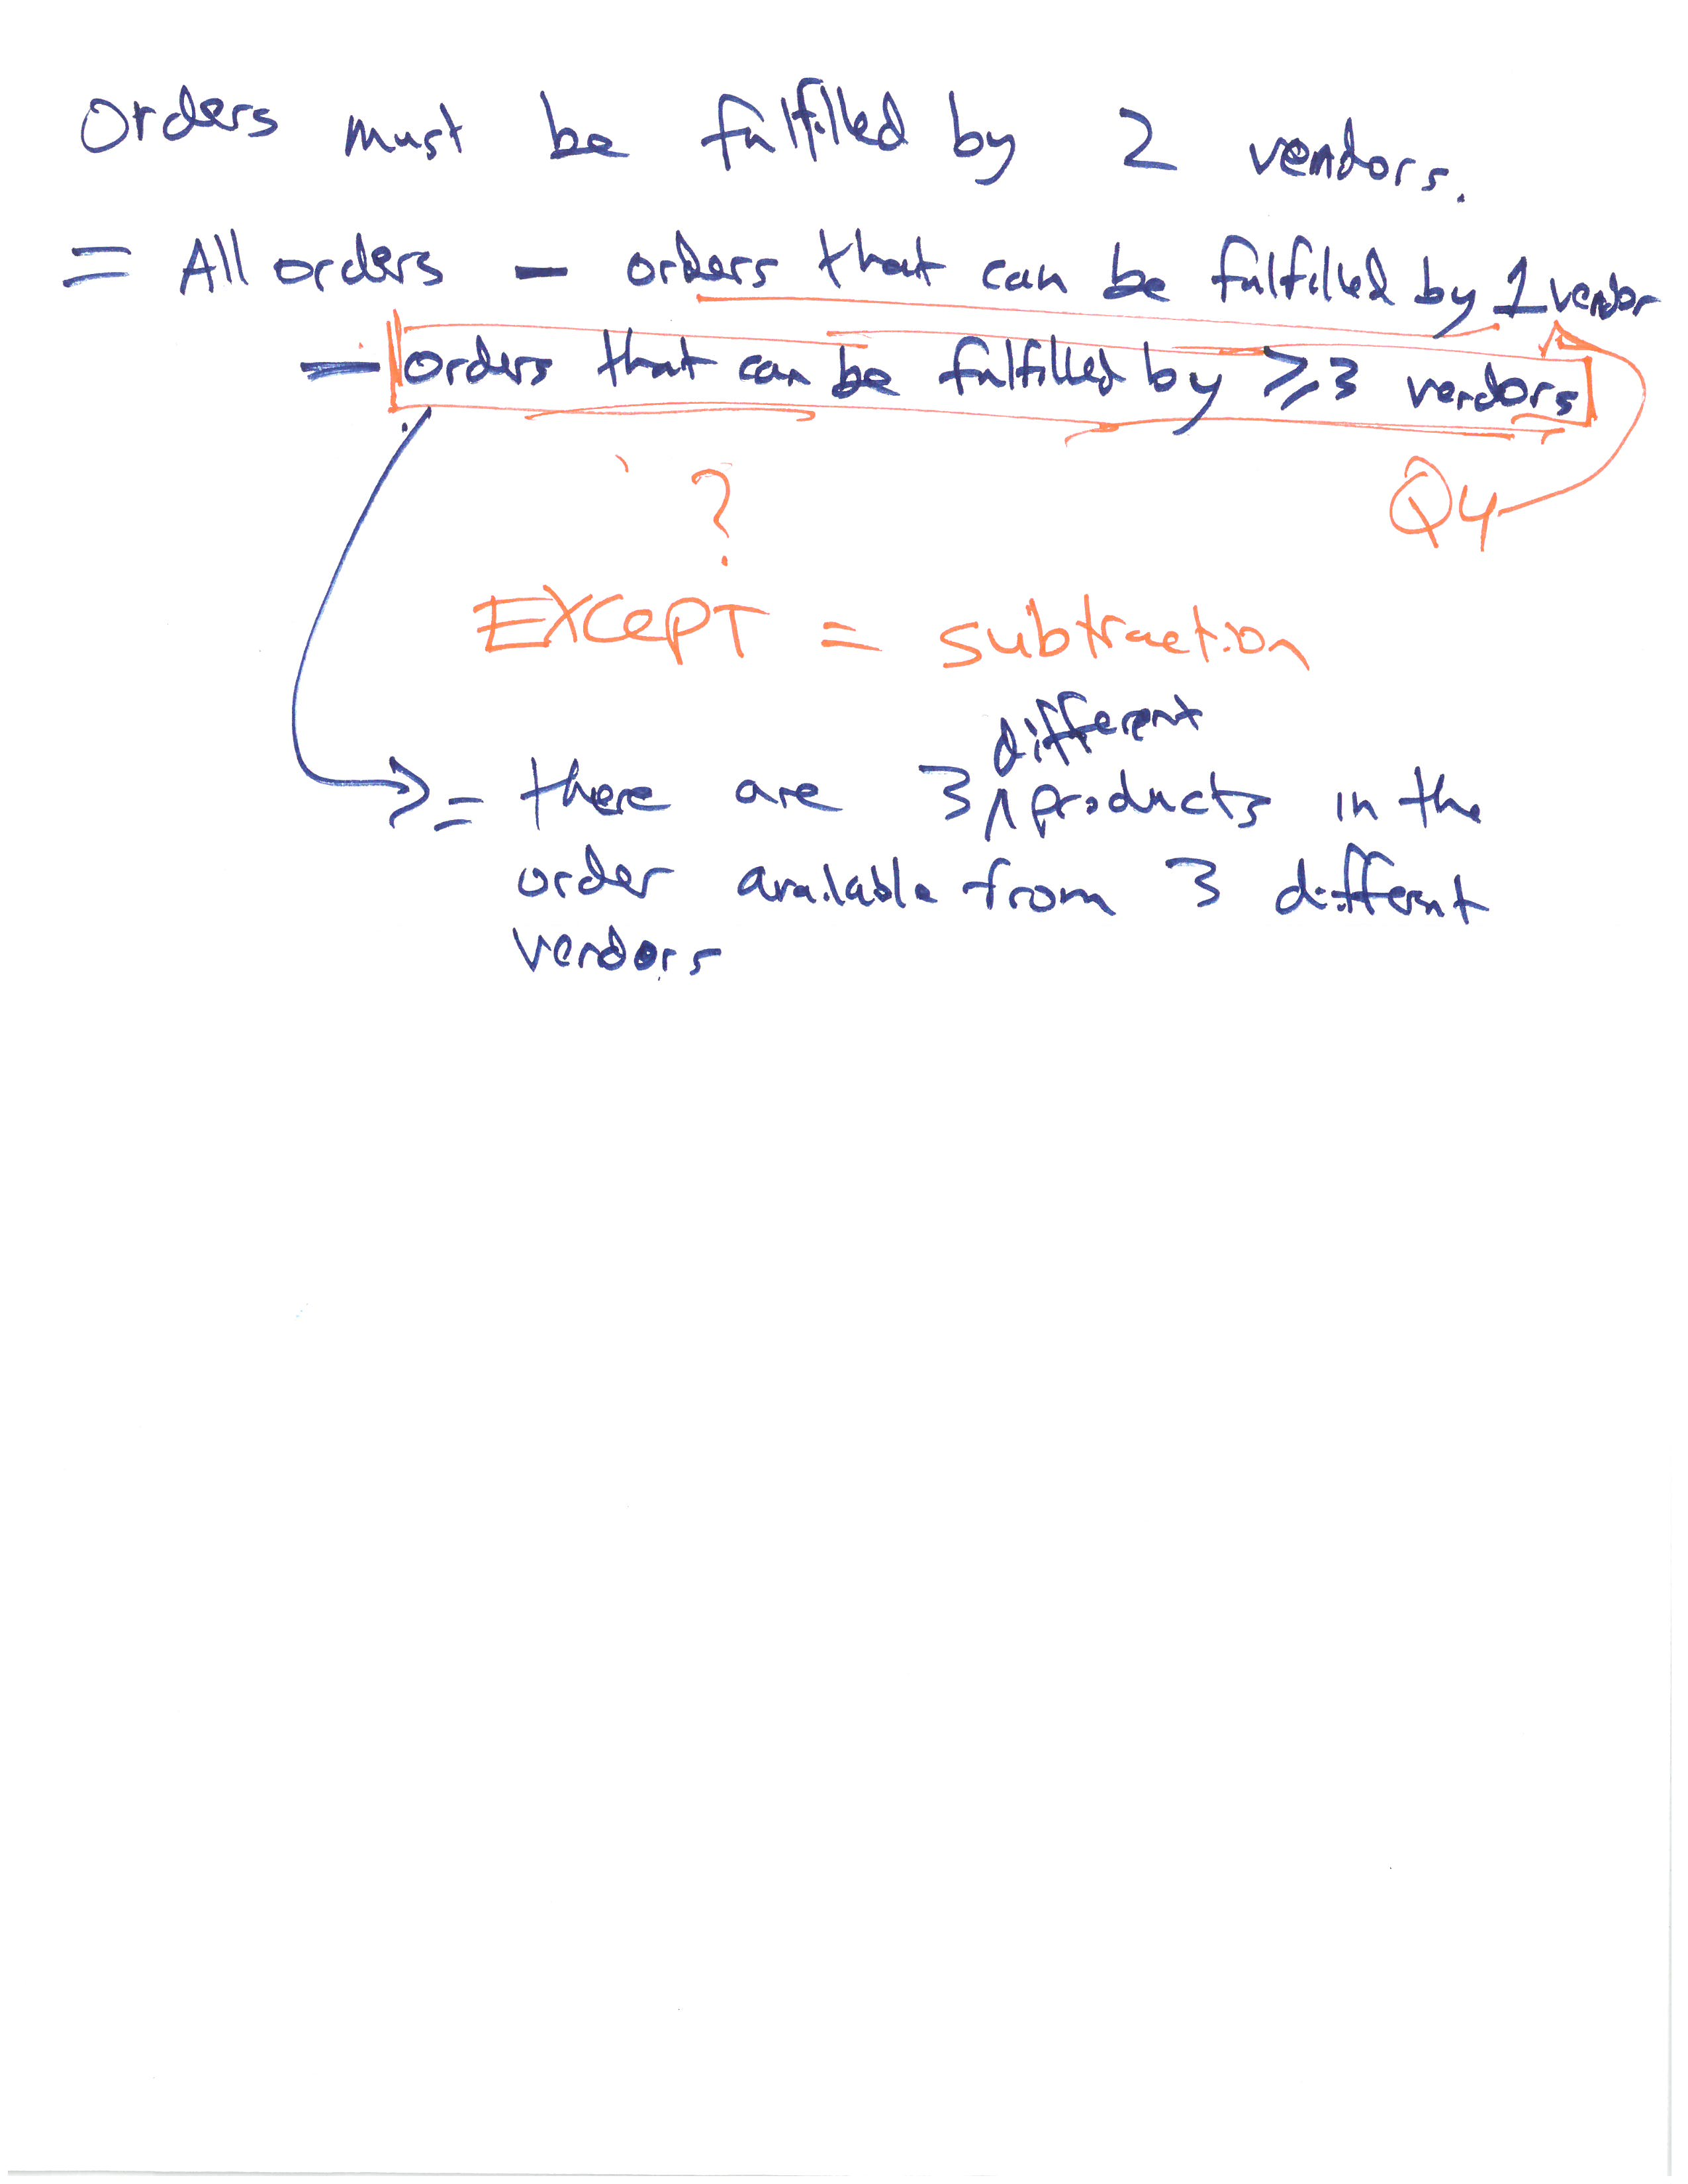 Orders must be fulfilled by 2 vendors.
= All orders - orders that can be fulfilled by 1 vendor
- orders that can be fulfilled by ≥3 vendors
?
Q4
EXCEPT = subtraction
different
= there are 3 ∧ products in the
order available from 3 different
vendors